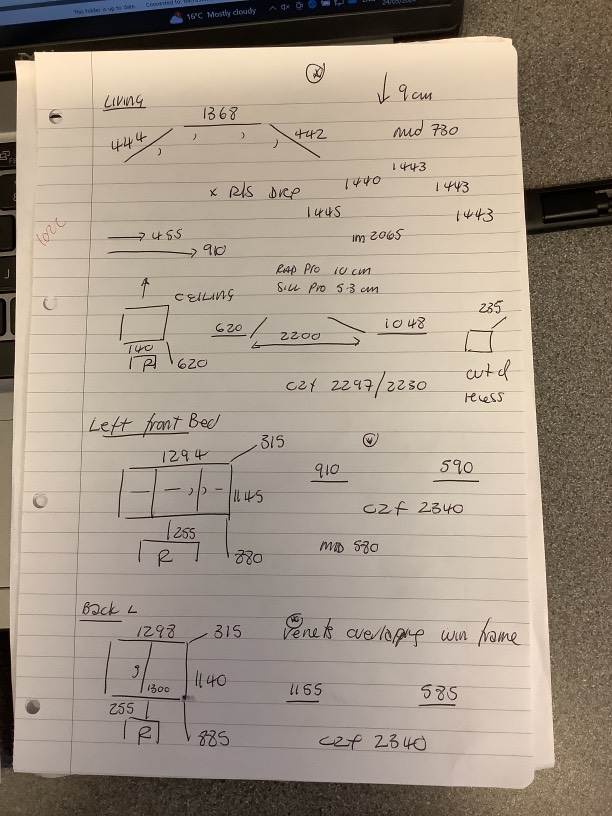 This folder is up to date.
16°C Mostly cloudy
LIVING
↓ 9 cm
1368
444 442
mid 730
1443
1440 1443
x R/S DRP
1445 1443
→ 455
→ 910
1m 2065
RAD Pro 10 cm
Sill Pro 5.3 cm
CEILING
620 2200 1048
235
140
R 620
cut d
recess
C2f 2297/2230
Left front Bed
1294 315
910 590
1145
C2f 2340
255
R 880
MID 580
Back L
1298 315
Venets overlapping win frame
1300 1140
1155 585
255
R 885
C2f 2340